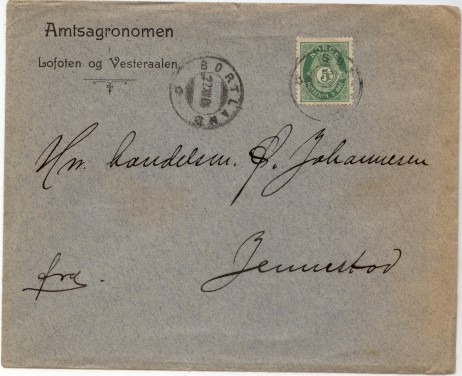 Amtsagronomen
Lofoten og Vesteraalen.
BORTLAND
NORGE
5
Hr. handelsm. P. Johannesen
Jennestad
fra.